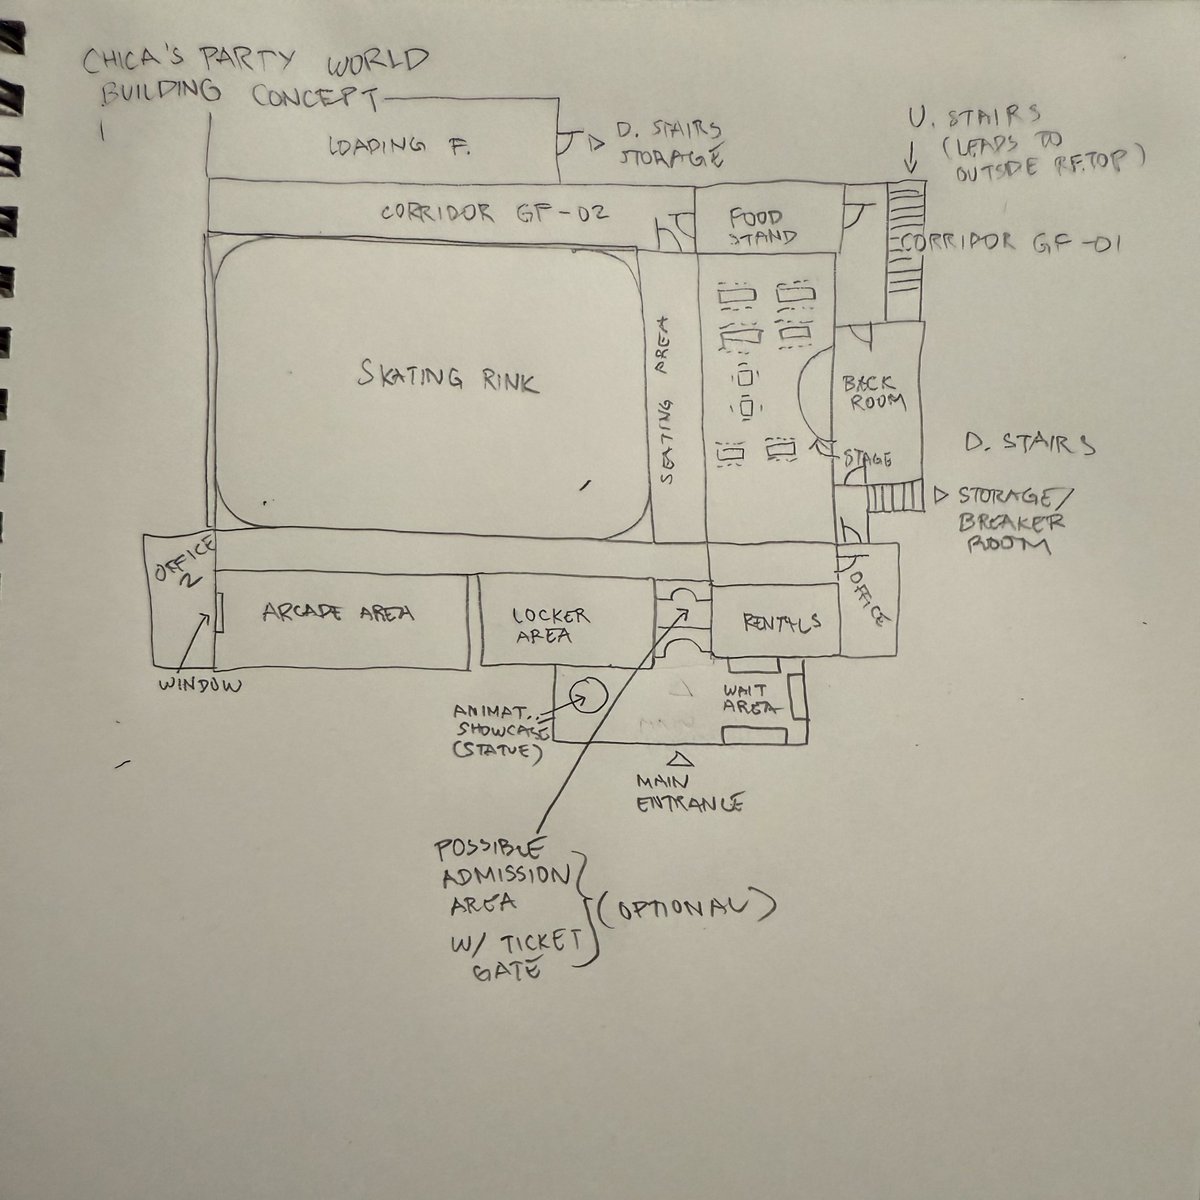 CHICA'S PARTY WORLD
BUILDING CONCEPT
LOADING F.
D. STAIRS
STORAGE
U. STAIRS
(LEADS TO
OUTSIDE RF.TOP)
CORRIDOR GF-02
FOOD
STAND
CORRIDOR GF-01
SKATING RINK
SEATING AREA
BACK
ROOM
STAGE
D. STAIRS
STORAGE/
BREAKER
ROOM
OFFICE
2
ARCADE AREA
LOCKER
AREA
RENTALS
OFFICE
WINDOW
ANIMAT..
SHOWCASE
(STATUE)
WAIT
AREA
MAIN
ENTRANCE
POSSIBLE
ADMISSION
AREA
W/ TICKET
GATE
(OPTIONAL)